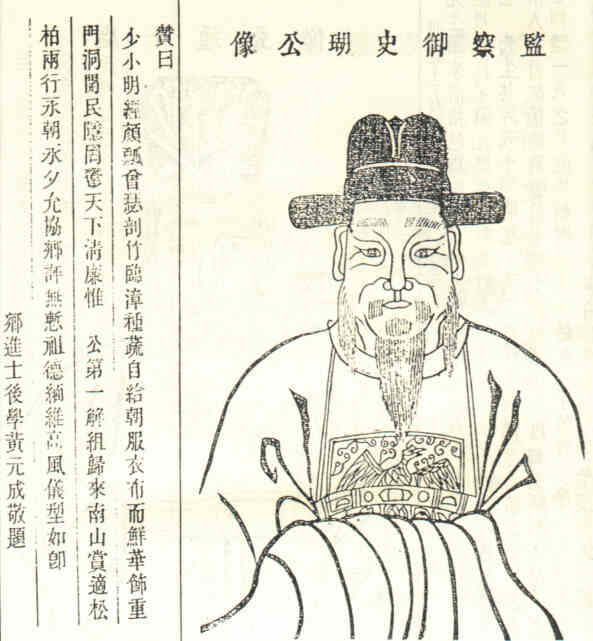 監察御史瑚公像
贊曰
少小明經顔瓢曾瑟剖竹臨漳種蔬自給朝服衣布而鮮華飾重
門洞開民隱罔壅天下清廉惟 公第一解組歸來南山賞適松
柏兩行永朝永夕允協鄉評無慙祖德緬維高風儀型如卽
鄉進士後學黃元成敬題